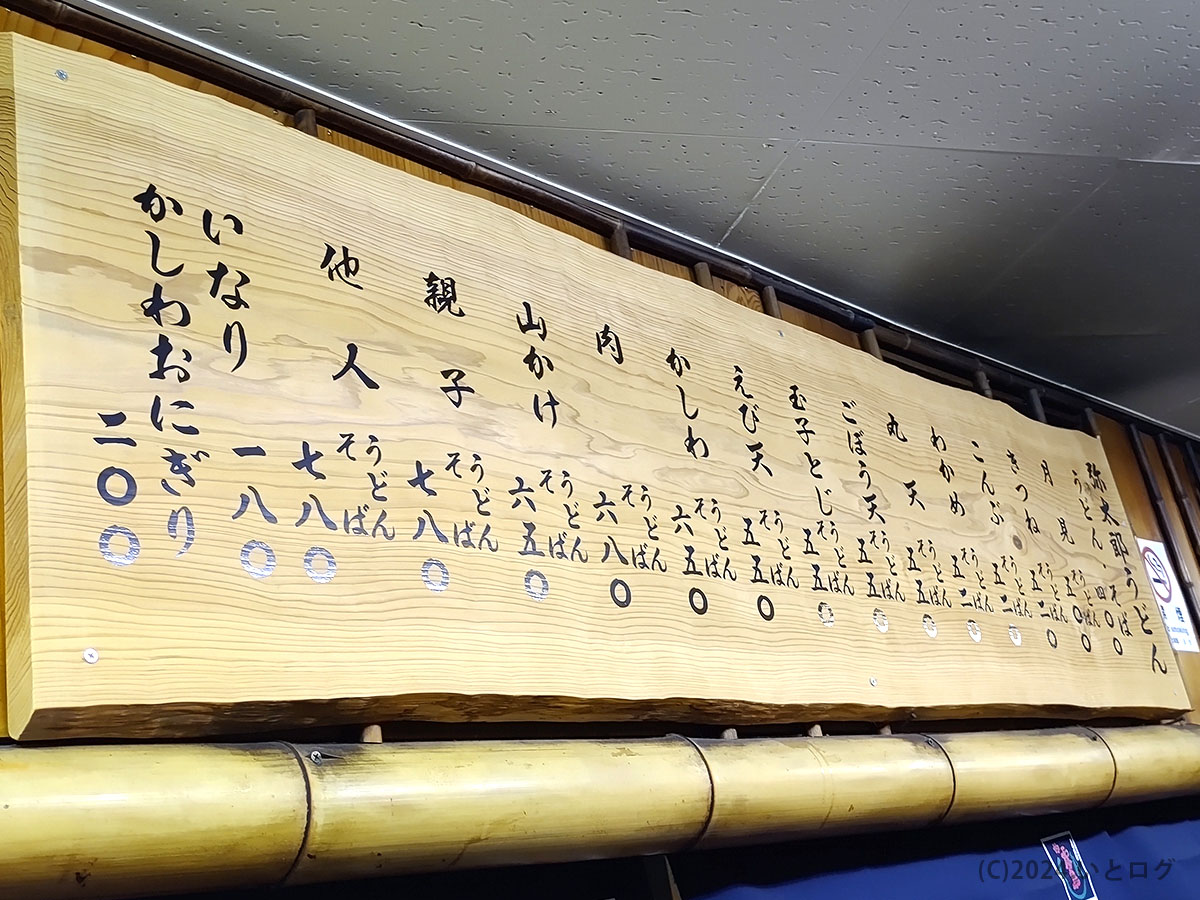 弥太郎うどん
うどん・そば 四〇〇
月見 うどん そば 五〇〇
きつね うどん そば 五二〇
こんぶ うどん そば 五二〇
わかめ うどん そば 五二〇
丸天 うどん そば 五五〇
ごぼう天 うどん そば 五五〇
玉子とじ うどん そば 五五〇
えび天 うどん そば 五五〇
かしわ うどん そば 六五〇
肉 うどん そば 六八〇
山かけ うどん そば 六五〇
親子 うどん そば 七八〇
他人 うどん そば 七八〇
いなり 一八〇
かしわおにぎり 二〇〇
(C)202 いとログ